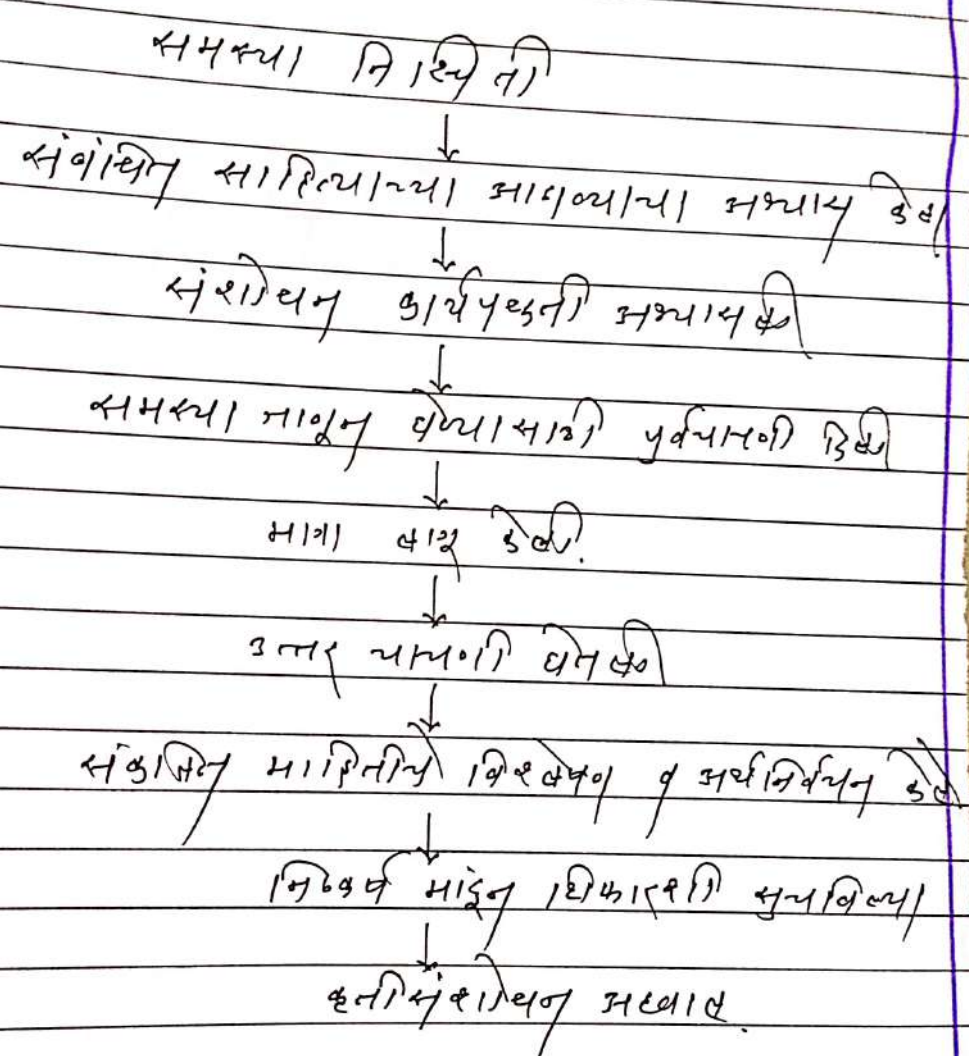 समस्या निश्चिती
↓
संबंधित साहित्याच्या आढाव्याचा अभ्यास केला
↓
संशोधन कार्यपद्धती अभ्यासली
↓
समस्या जाणून घेण्यासाठी पुर्वचाचणी दिली
↓
मात्रा लागू केली.
↓
उत्तर चाचणी घेतली
↓
संकलित माहितीचे विश्लेषण व अर्थनिर्वचन केले
↓
निष्कर्ष मांडून शिफारशी सुचविल्या
↓
कृतीसंशोधन अहवाल.